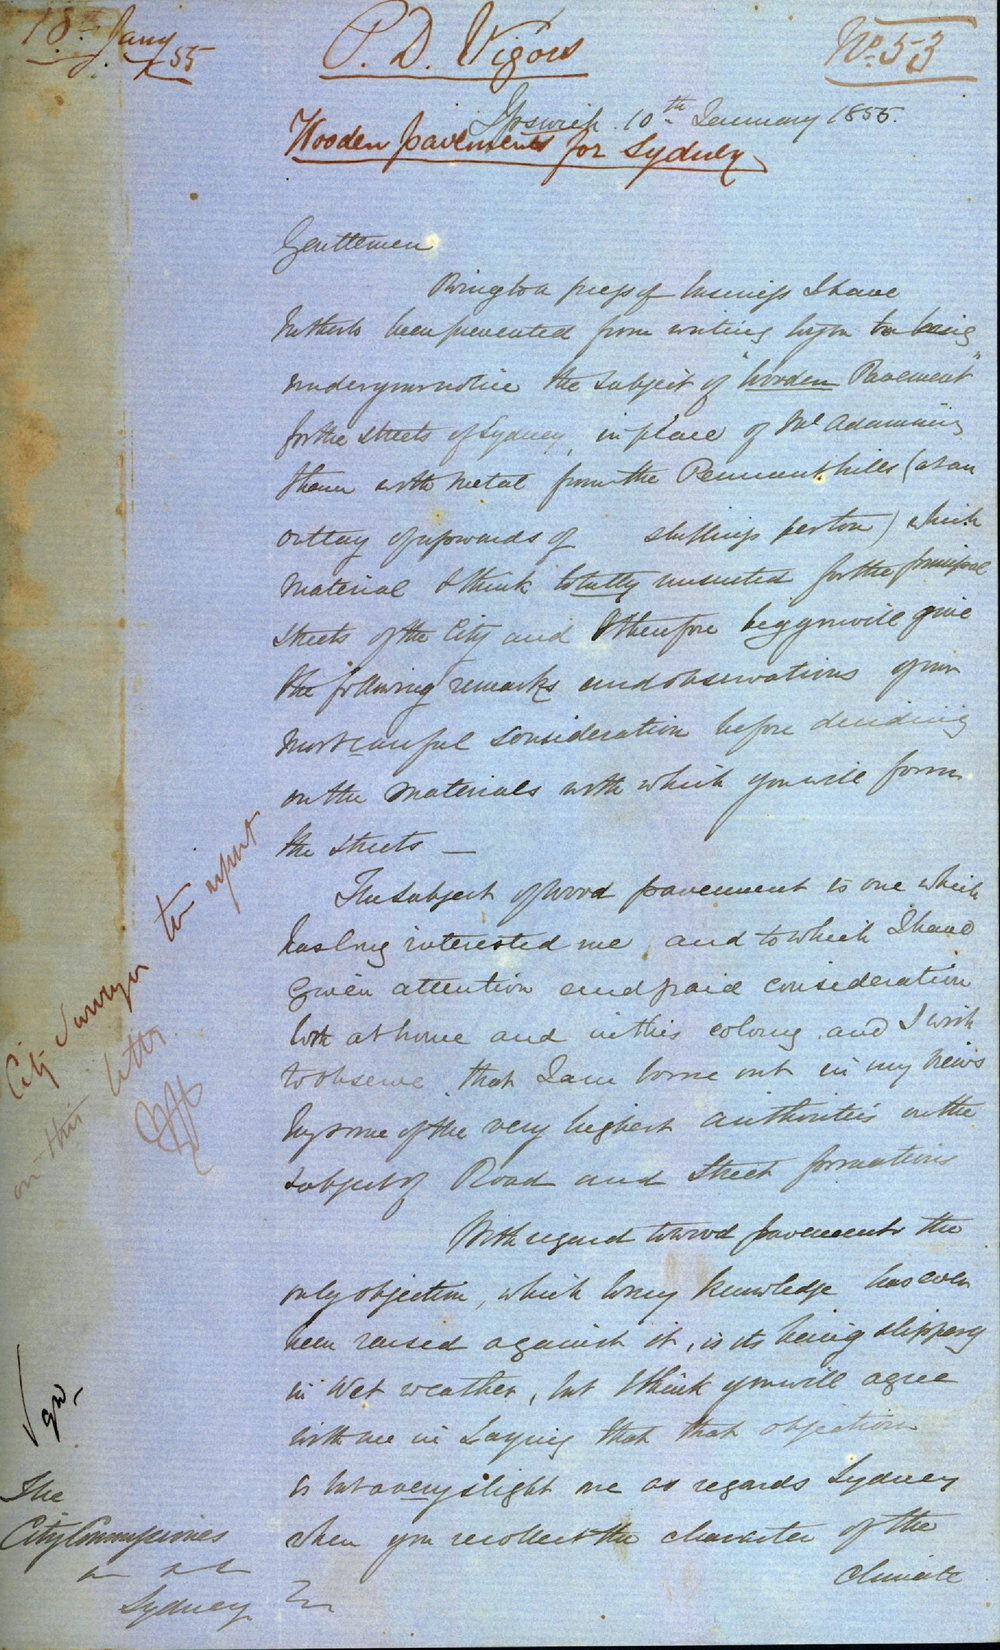 18th Jany /55
P. D. Vigors
No. 53
Ipswich 10th January 1855.
Wooden pavements for Sydney
Gentlemen
Owing to a press of business I have
hitherto been prevented from writing before to bring
under your notice the subject of "Wooden Pavement"
for the streets of Sydney, in place of McAdamizing
them with metal from the Pennant hills (at an
outlay of upwards of shillings per ton) which
material I think totally unsuited for the principal
streets of the City and I therefore beg you will give
the following remarks and observations your
most careful consideration before deciding
on the materials with which you will form
the streets —
The subject of wood pavement is one which
has long interested me, and to which I have
given attention and paid consideration
both at home and in this colony and I wish
to observe that I am borne out in my views
by some of the very highest authorities on the
subject of Road and Street formations
With regard to wood pavements the
only objection, which to my knowledge has ever
been raised against it, is its being slippery
in Wet weather, but I think you will agree
with me in Saying that that objection
is but a very slight one as regards Sydney
when you recollect the character of the
climate
City Surveyor to report
on this letter
The
City Commissioners
Sydney